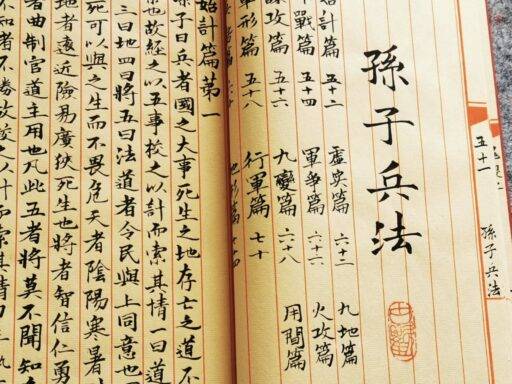 五十一 孫子兵法
孫子兵法
始計篇 五十二 虛實篇 六十二 九地篇
戰篇 五十四 軍爭篇 六十六 火攻篇
謀攻篇 五十六 九變篇 六十八 用間篇
軍形篇 五十八 行軍篇 七十
始計篇第一
孫子曰兵者國之大事死生之地存亡之道不
也故經之以五事校之以計而索其情一曰道
三曰地四曰將五曰法道者令民與上同意也
死可以與之生而不畏危天者陰陽寒暑時
地者遠近險易廣狹死生也將者智信仁勇
者曲制官道主用也凡此五者將莫不聞知
知者不勝故校之以計而索其情曰